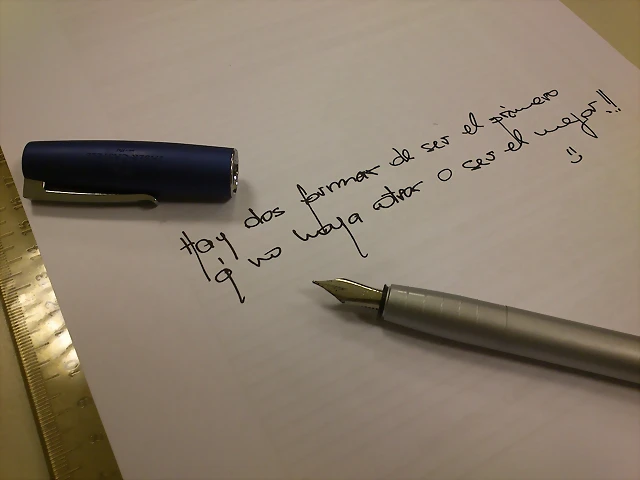 Hay dos formas de ser el primero
q' no haya otra o ser el mejor!!